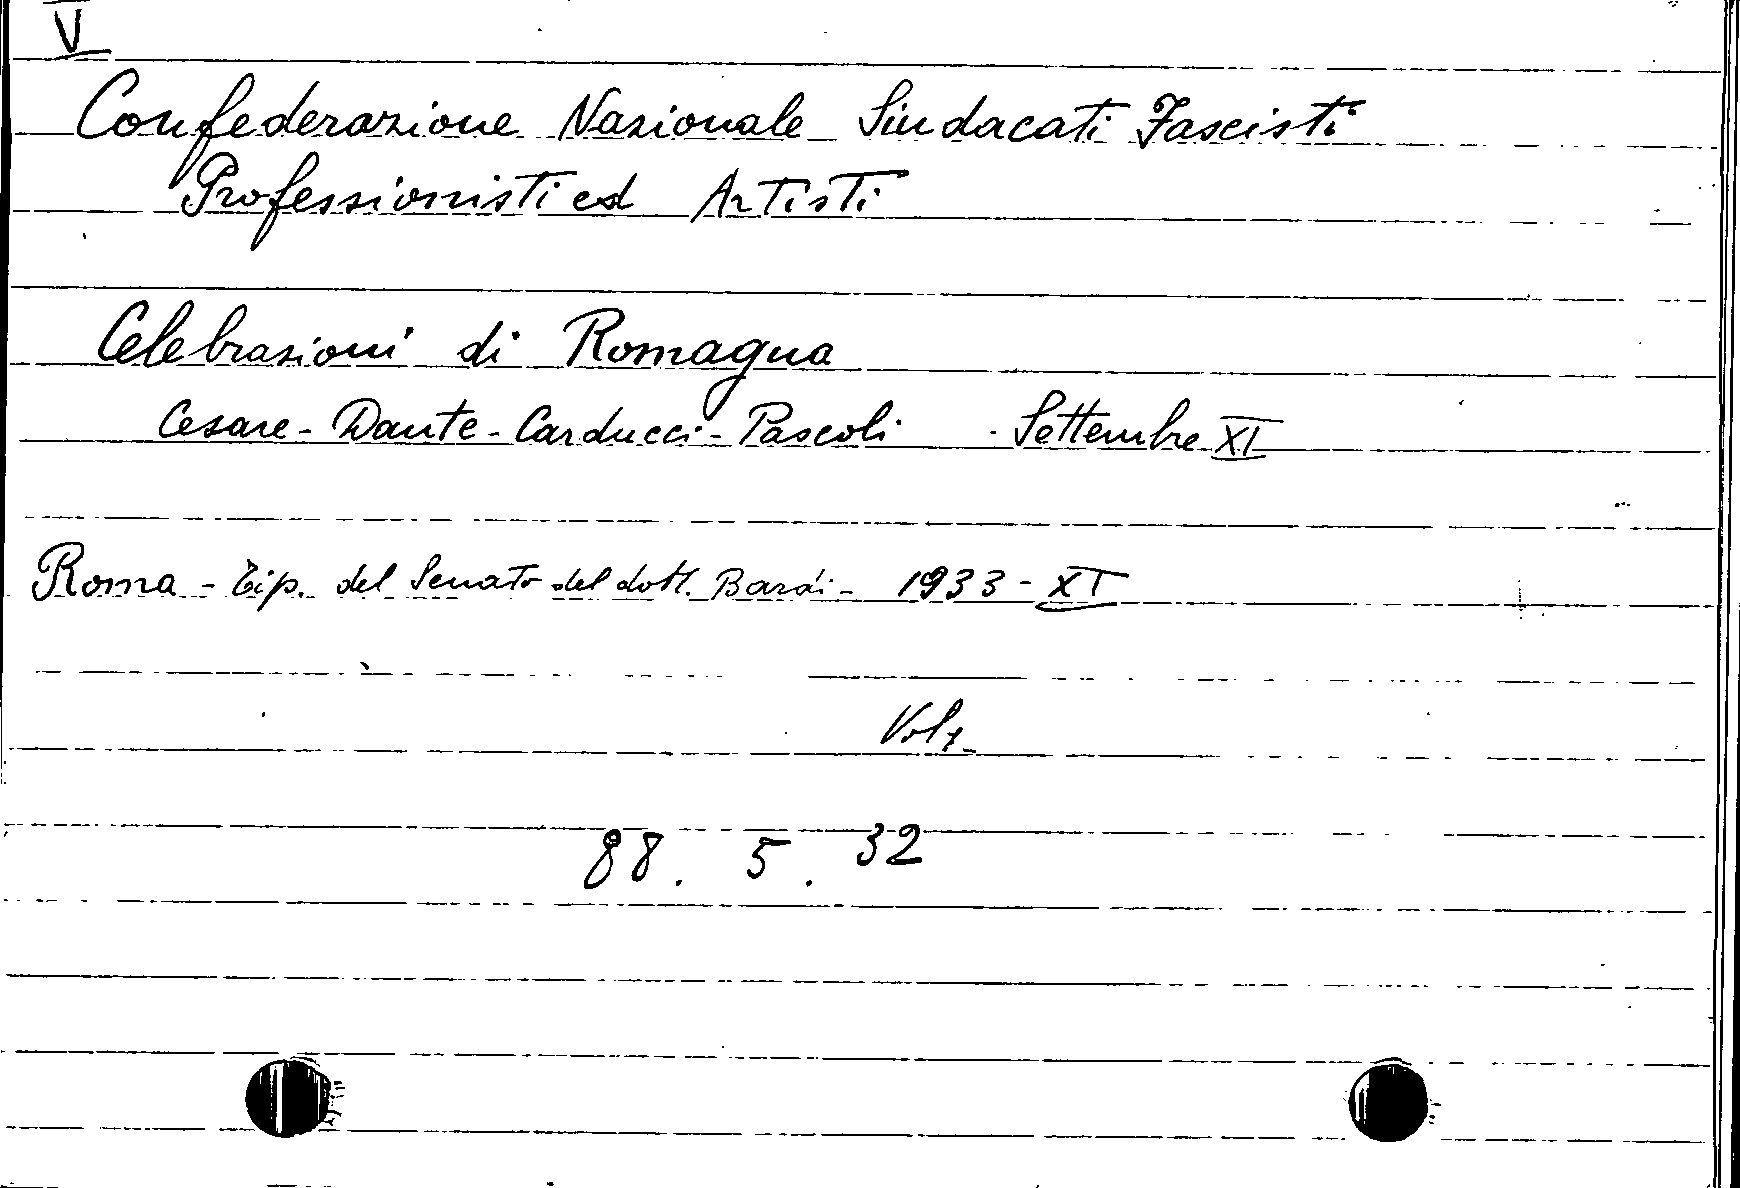 V
Confederazione Nazionale Sindacati Fascisti
Professionisti ed Artisti
Celebrazioni di Romagna
Cesare - Dante - Carducci - Pascoli - Settembre XI
Roma - Tip. del Senato del dott. Bardi - 1933 - XI
Vol 1
88. 5. 32